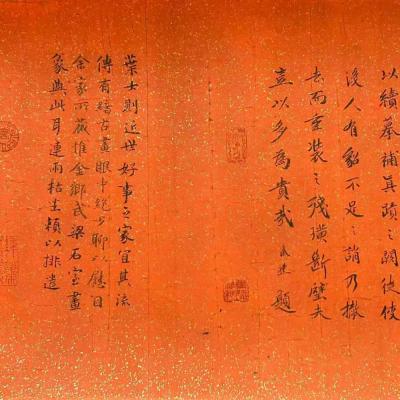 以續摹補真蹟之闕徒使
後人有貂不足之誚乃撤
去而重裝之殘璜斷璧夫
豈以多為貴哉 題
葉士則近世好事之家宜其流
傳有緒古畫眼中絕少聊以慰目
余家所藏惟金鄉武梁石室畫
象與此耳連雨枯坐賴以排遣